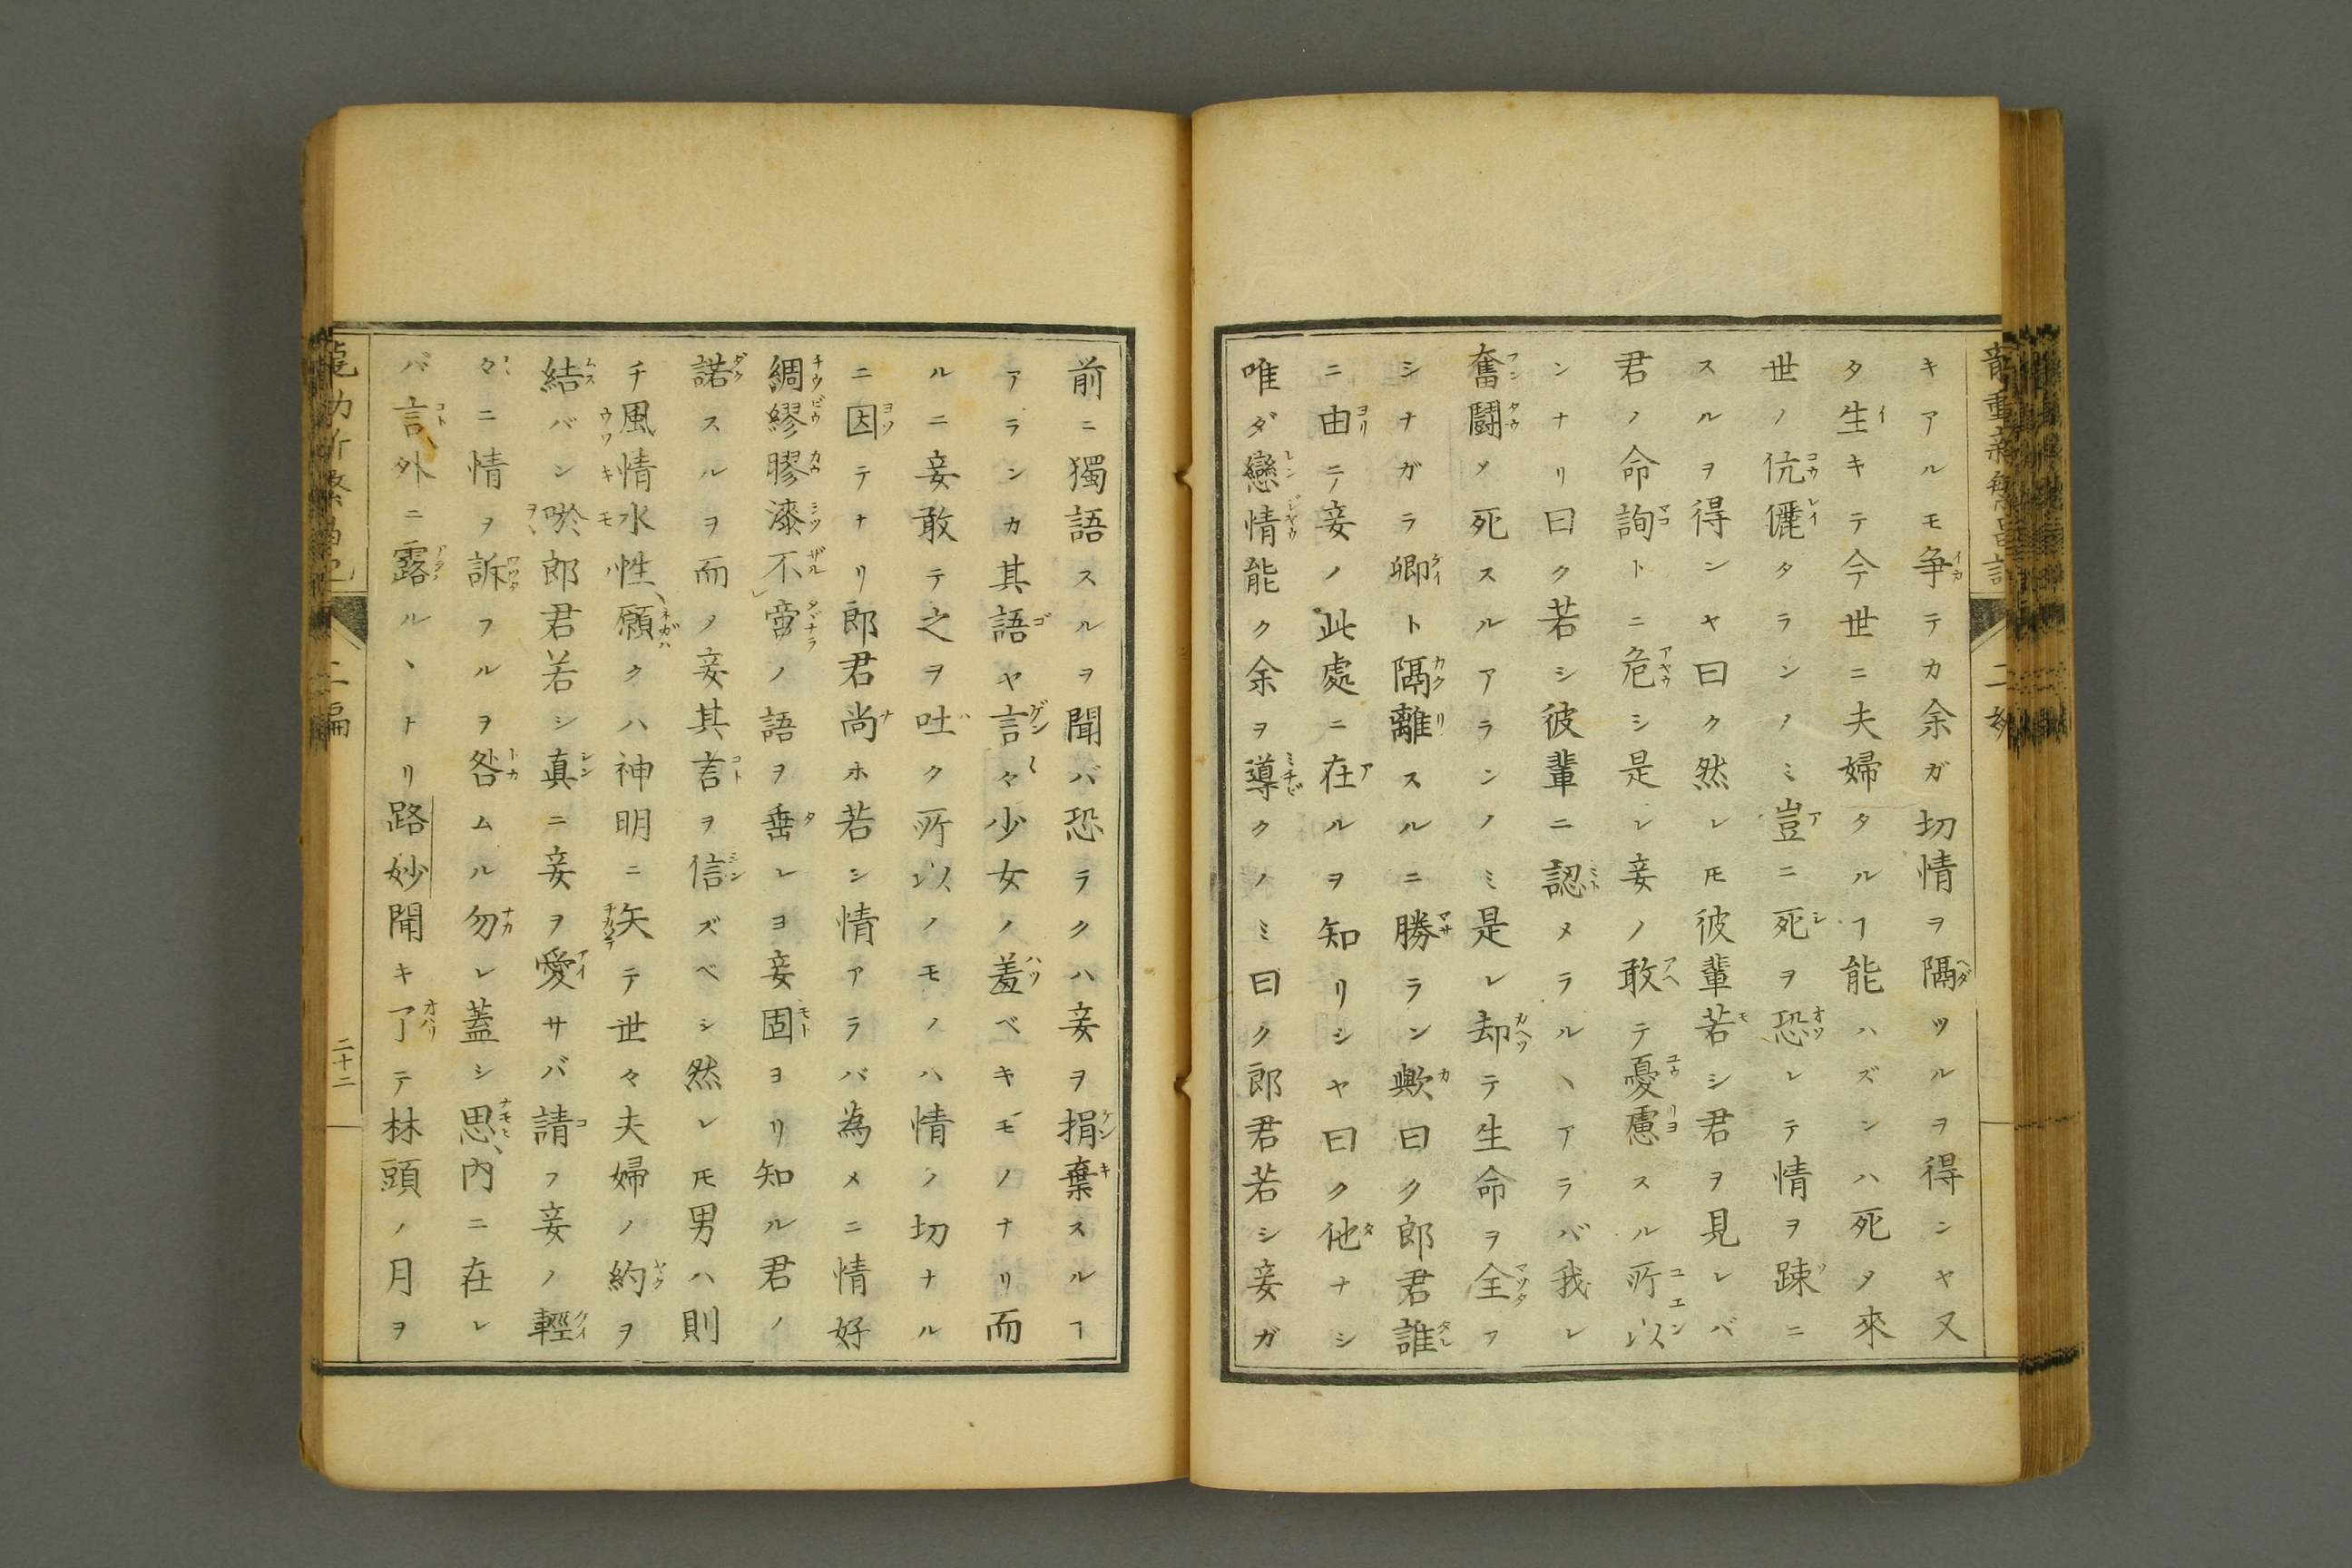 キアルモ争テカ余ガ切情ヲ隔ツルヲ得ンヤ又
タ生キテ今世ニ夫婦タルヿ能ハズンハ死タ來
世ノ伉儷タランノミ豈ニ死ヲ恐レテ情ヲ踈ニ
スルヲ得ンヤ曰ク然レ𪜈彼輩若シ君ヲ見レバ
君ノ命詢トニ危シ是レ妾ノ敢テ憂慮スル所以
ンナリ曰ク若シ彼輩ニ認メラルヽアラバ我レ
奮鬪メ死スルアランノミ是レ却テ生命ヲ全フ
シナガラ卿ト隔離スルニ勝ラン歟曰ク郎君誰
ニ由テ妾ノ此處ニ在ルヲ知リシヤ曰ク他ナシ
唯ダ戀情能ク余ヲ導クノミ曰ク郎君若シ妾ガ
前ニ獨語スルヲ聞バ恐ラクハ妾ヲ捐棄スルヿ
アランカ其語ヤ言々少女ノ羞ベキモノナリ而
ルニ妾敢テ之ヲ吐ク所以ノモノハ情ノ切ナル
ニ因テナリ郎君尚ホ若シ情アラバ為メニ情好
綢繆膠漆不啻ノ語ヲ垂レヨ妾固ヨリ知ル君ノ
諾スルヲ而ノ妾其言ヲ信ズベシ然レ𪜈男ハ則
チ風情水性願クハ神明ニ矢テ世々夫婦ノ約ヲ
結バン吁郎君若シ真ニ妾ヲ愛サバ請フ妾ノ輕
々ニ情ヲ訴フルヲ咎ムル勿レ蓋シ思内ニ在レ
バ言外ニ露ルヽナリ路妙聞キ了テ林頭ノ月ヲ
二編
二十二